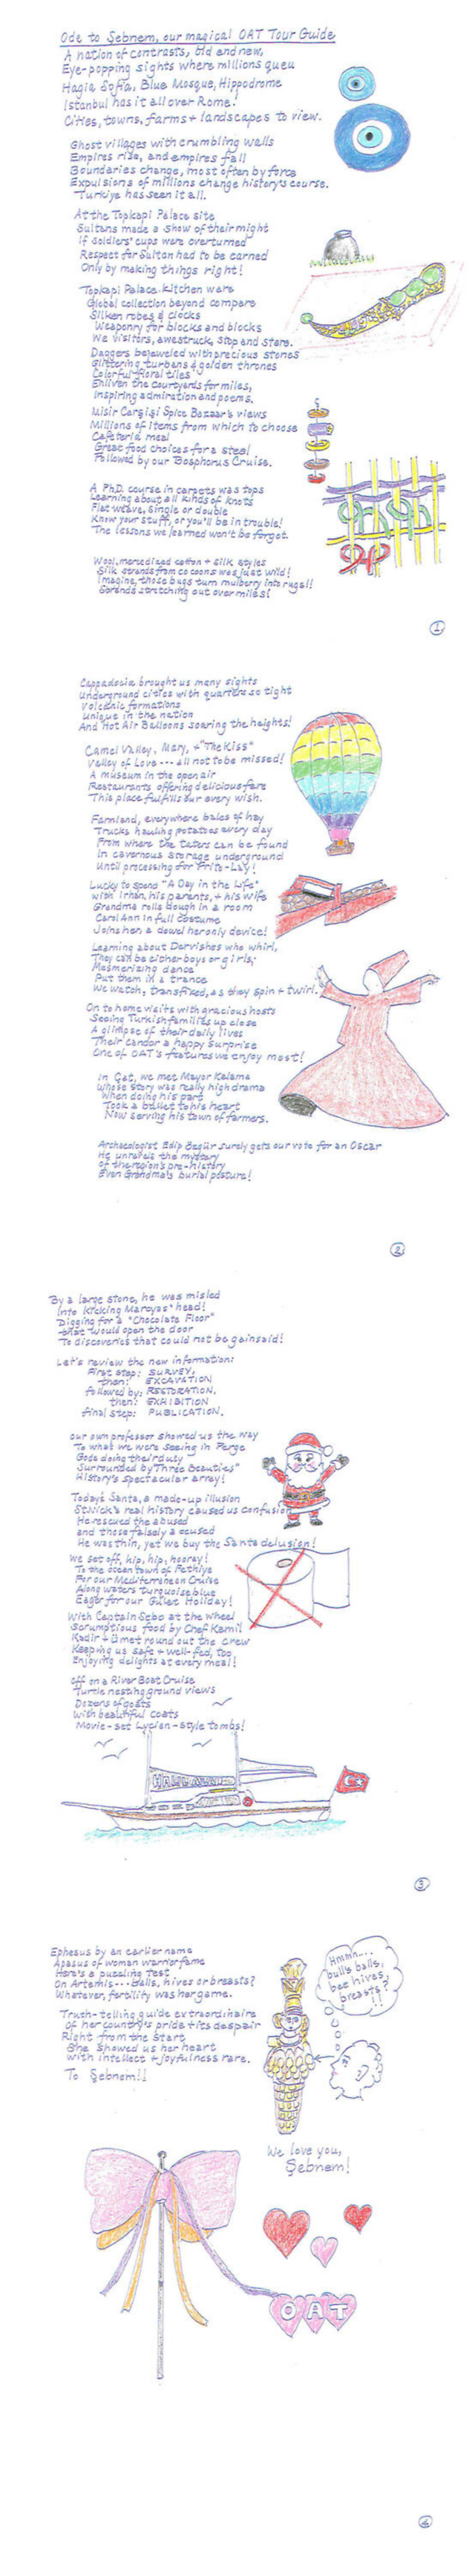 Ode to Şebnem, our magical OAT Tour Guide
A nation of contrasts, old and new,
Eye-popping sights where millions queu
Hagia Sofia, Blue Mosque, Hippodrome
Istanbul has it all over Rome!
Cities, towns, farms + landscapes to view.
Ghost villages with crumbling walls
Empires rise, and empires fall
Boundaries change, most often by force
Expulsions of millions change history's course.
Turkiye has seen it all.
At the Topkapi Palace site
Sultans made a show of their might
If soldiers' cups were overturned
Respect for Sultan had to be earned
Only by making things right!
Topkapi Palace kitchen ware
Global collection beyond compare
Silken robes & clocks
Weaponry for blocks and blocks
We visitors, awestruck, stop and stare.
Daggers bejeweled with precious stones
Glittering turbans & golden thrones
Colorful floral tiles
Enliven the courtyards for miles,
Inspiring admiration and poems.
Misir Carşişi Spice Bazaar's views
Millions of items from which to choose
Cafeteria meal
Great food choices for a steal
Followed by our Bosphorus Cruise.
A Ph.D. course in carpets was tops
Learning about all kinds of knots
Flat weave, single or double
Know your stuff, or you'll be in trouble!
The lessons we learned won't be forgot.
Wool, mercerized cotton + silk styles
Silk strands from cocoons was just wild!
Imagine, those bugs turn mulberry into rugs!!
Strands stretching out over miles!
1
Cappadocia brought us many sights
Underground cities with quarters so tight
Volcanic formations
Unique in the nation
And Hot Air Balloons soaring the heights!
Camel Valley, Mary, + "The Kiss"
Valley of Love --- all not to be missed!
A museum in the open air
Restaurants offering delicious fare
This place fulfills our every wish.
Farmland, everywhere bales of hay
Trucks hauling potatoes every day
From where the taters can be found
In cavernous storage underground
Until processing for Frito-Lay!
Lucky to spend "A Day in the Life"
with Irhan, his parents, + his wife
Grandma rolls dough in a room
Carol Ann in full costume
Joins her a dowel her only device!
Learning about Dervishes who whirl,
They can be either boys or girls,
Mesmerizing dance
Put them in a trance
We watch, transfixed, as they spin + twirl.
On to home visits with gracious hosts
Seeing Turkish families up close
A glimpse of their daily lives
Their candor a happy surprise
One of OAT's features we enjoy most!
In Çat, we met Mayor Kelama
Whose story was really high drama
When doing his part
Took a bullet to his heart
Now serving his town of farmers.
Archaeologist Edip Özgür surely gets our vote for an Oscar
He unravels the mystery
of the region's pre-history
Even Grandma's burial posture!
2
By a large stone, he was misled
Into kicking Marsyas' head!
Digging for a "Chocolate Floor"
that would open the door
To discoveries that could not be gainsaid!
Let's review the new information:
First step: SURVEY,
then: EXCAVATION
followed by: RESTORATION,
then: EXHIBITION
final step: PUBLICATION.
Our own professor showed us the way
To what we were seeing in Perge
Gods doing their duty
Surrounded by "Three Beauties"
History's spectacular array!
Today's Santa, a made-up illusion
St. Nick's real history caused us confusion
He rescued the abused
and those falsely accused
He was thin, yet we buy the Santa delusion!
We set off, hip, hip, hooray!
To the ocean town of Fethiye
For our Mediterranean Cruise
Along waters turquoise blue
Eager for our Gulet Holiday!
With Captain Sebo at the wheel
Scrumptious food by Chef Kamil
Kadir + Ümet round out the crew
Keeping us safe + well-fed, too
Enjoying delights at every meal!
Off on a River Boat Cruise
Turtle nesting ground views
Dozens of goats
With beautiful coats
Movie-set Lycian-style tombs!
3
Ephesus by an earlier name
Apasus of woman warrior fame
Here's a puzzling test
On Artemis --- balls, hives or breasts?
Whatever, fertility was her game.
Truth-telling guide extraordinaire
of her country's pride + its despair
Right from the Start
She showed us her heart
with intellect + joyfulness rare.
To Şebnem!!
Hmmm...
bulls balls,
bee hives,
breasts?
!!
We love you,
Şebnem!
OAT
4